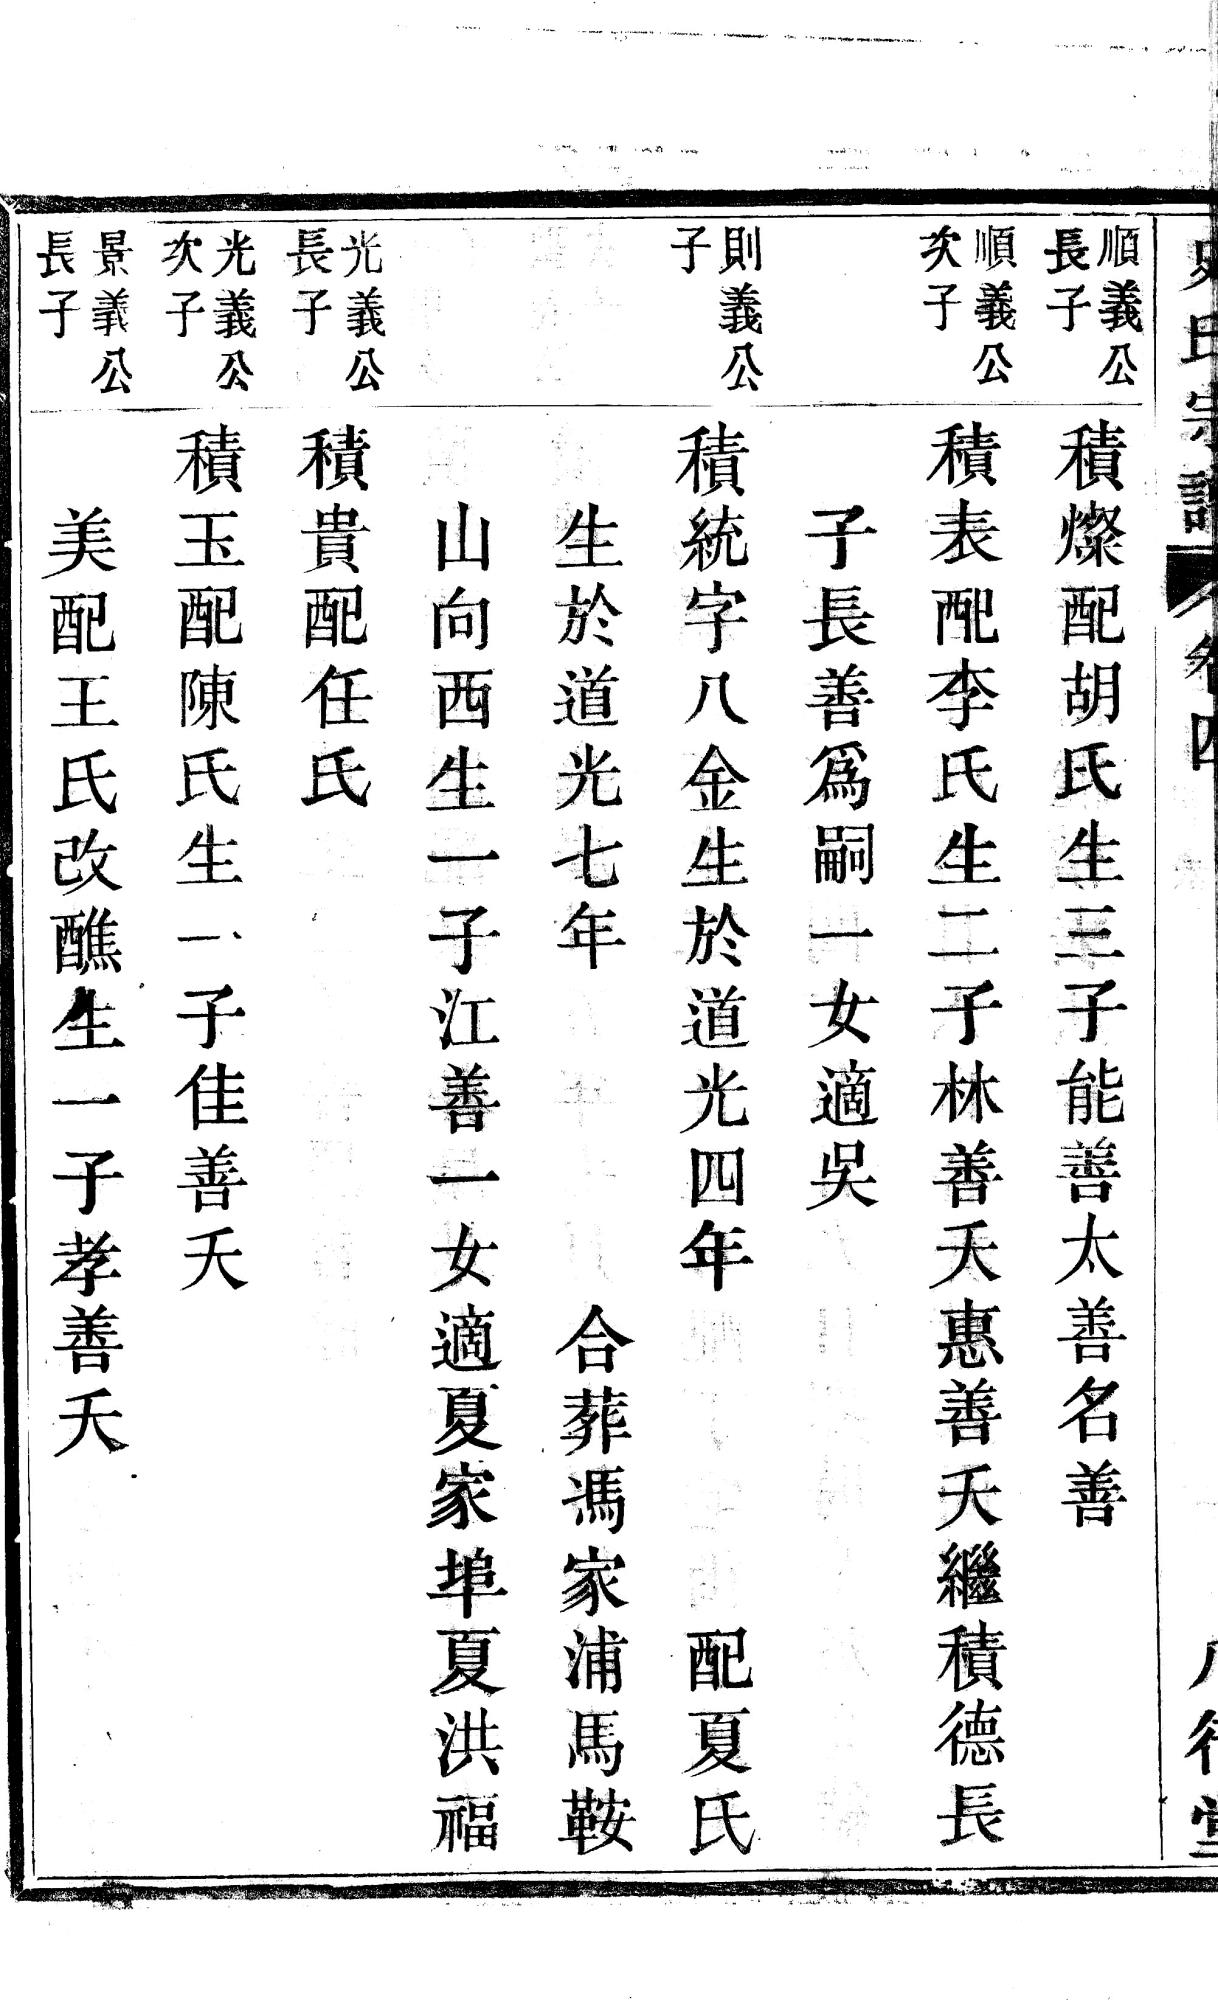 史氏宗譜 卷四
順義公長子
積燦配胡氏生三子能善太善名善
順義公次子
積表配李氏生二子林善夭惠善夭繼積德長
子長善爲嗣一女適吳
則義公子
積統字八金生於道光四年 配夏氏
生於道光七年 合葬馮家浦馬鞍
山向西生一子江善一女適夏家埠夏洪福
光義公長子
積貴配任氏
光義公次子
積玉配陳氏生一子佳善夭
景義公長子
美配王氏改醮生一子孝善夭